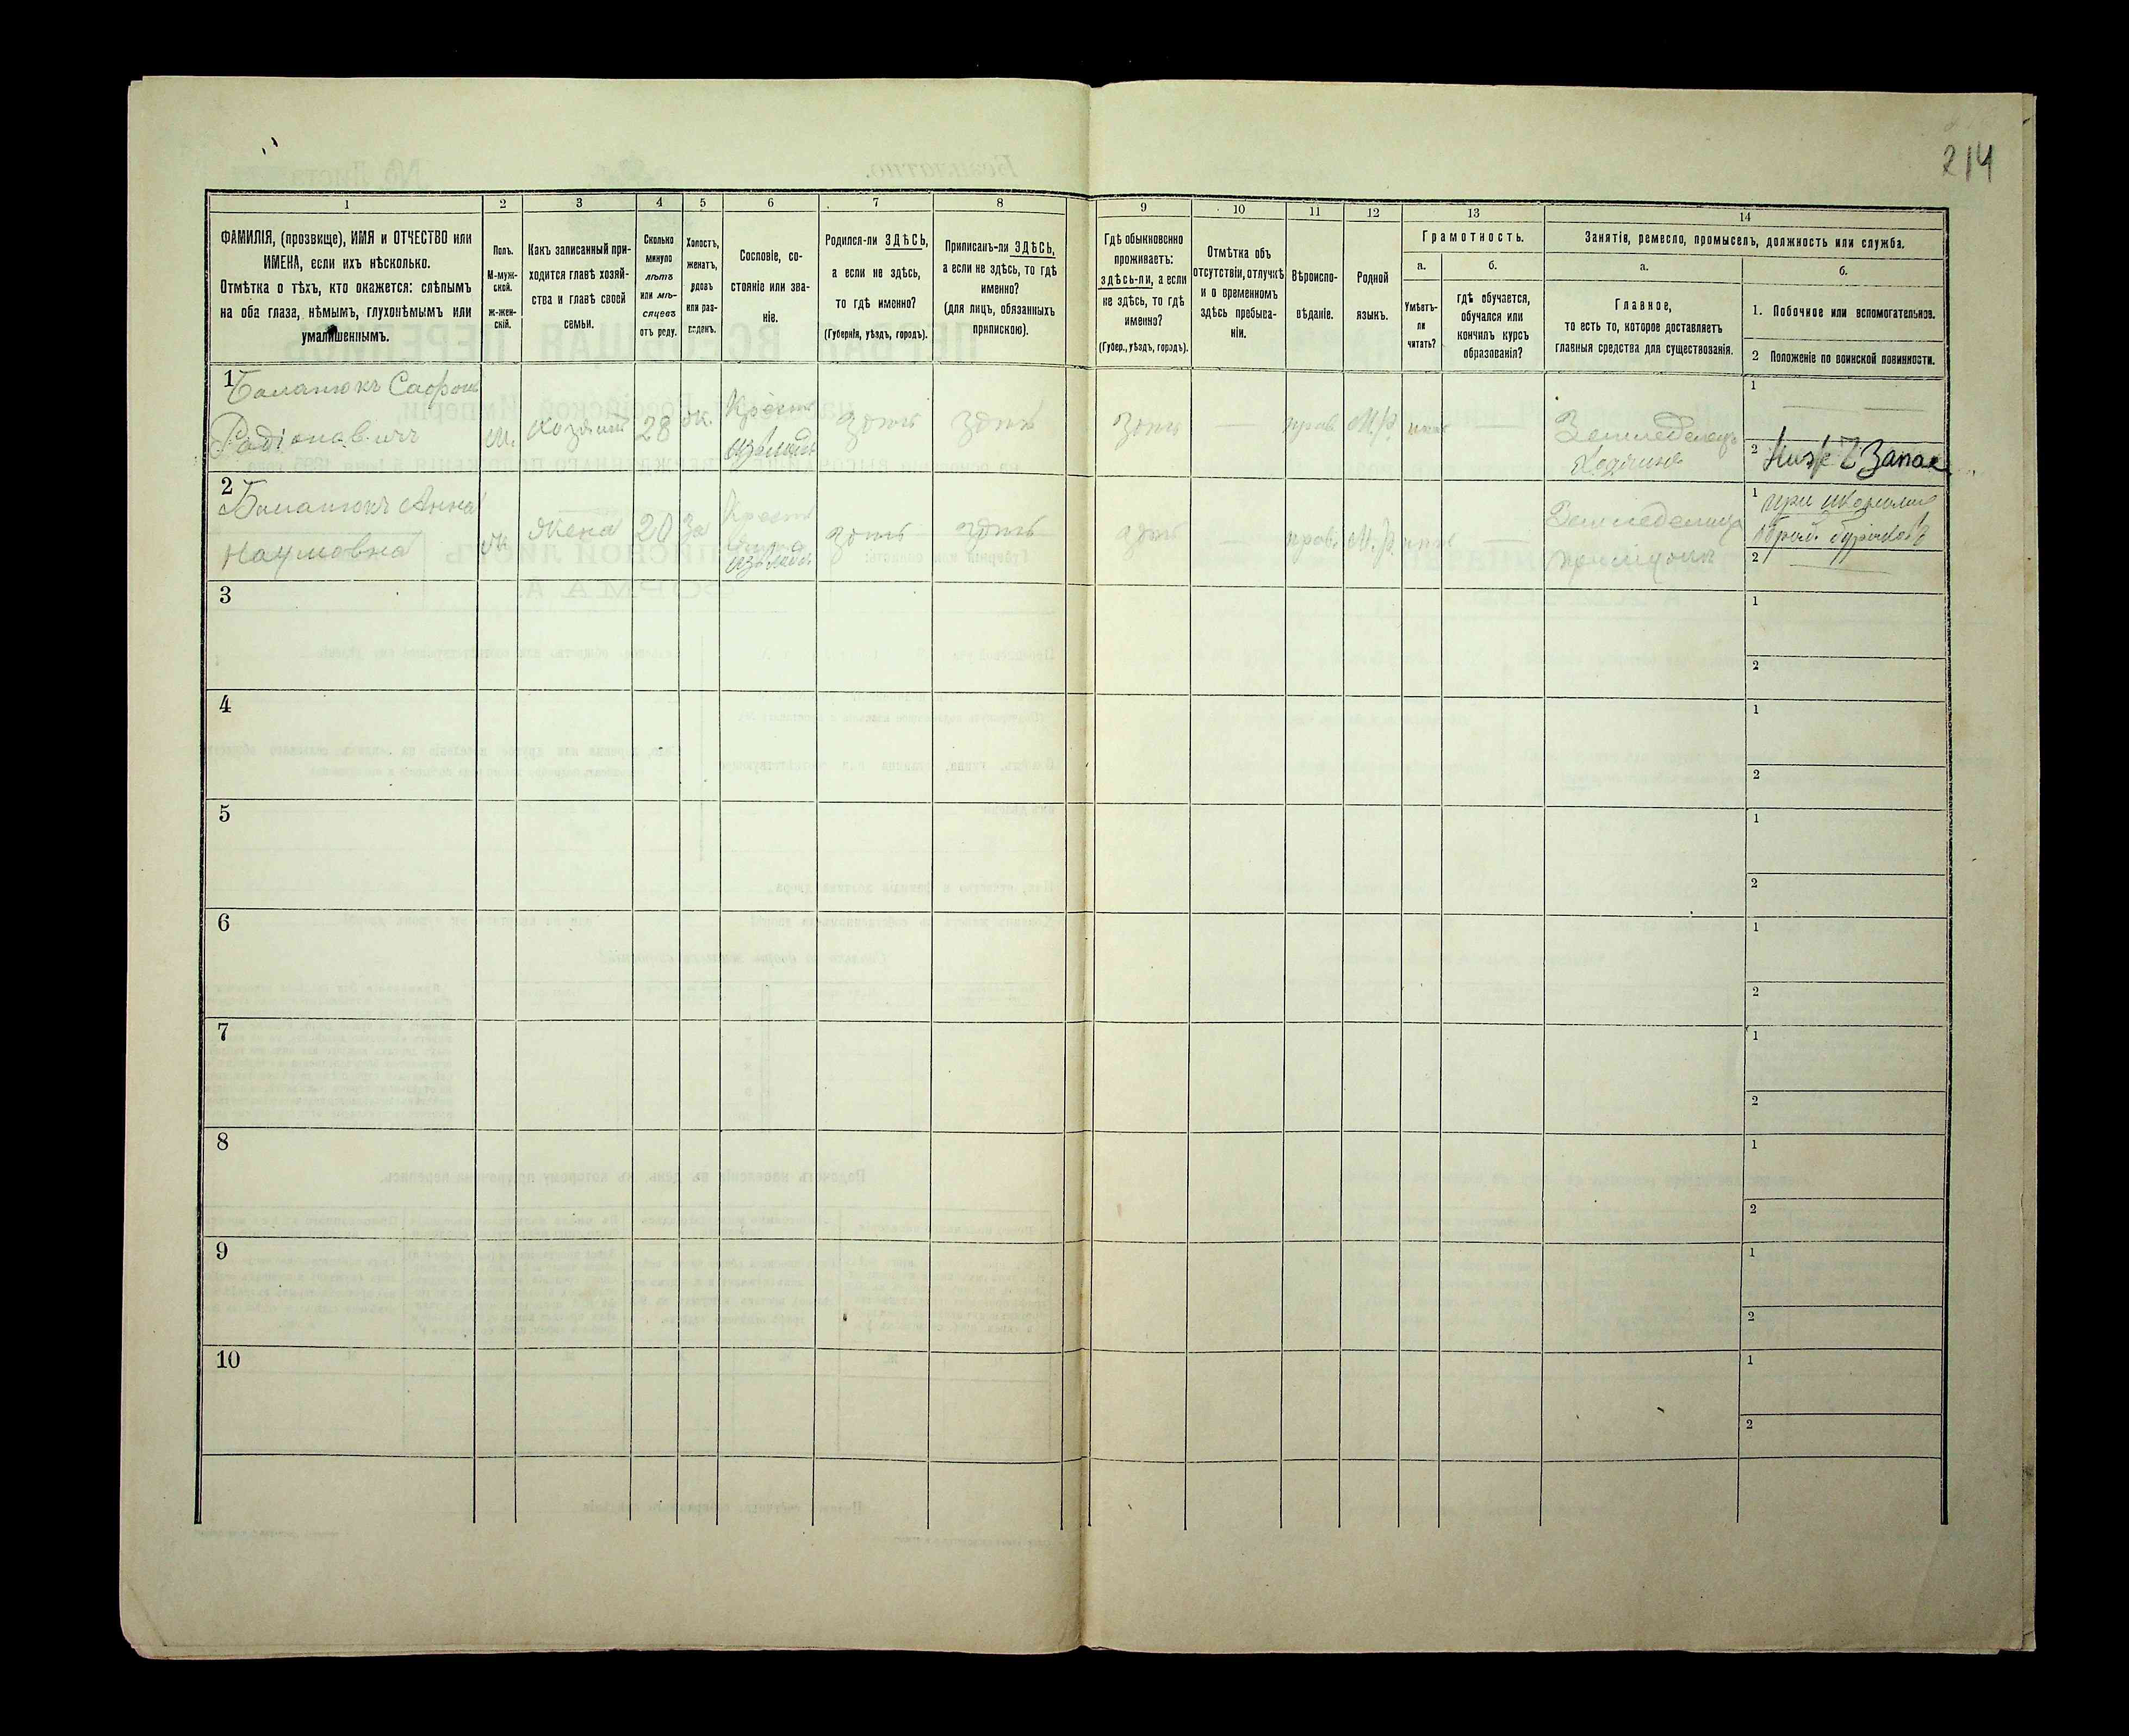 214
1
2
3
4
5
6
7
8
9
10
11
12
13
14
ФАМИЛІЯ, (прозвище), ИМЯ и ОТЧЕСТВО или
ИМЕНА, если ихъ нѣсколько.
Отмѣтка о тѣхъ, кто окажется: слѣпымъ
на оба глаза, нѣмымъ, глухонѣмымъ или
умалишеннымъ.
Полъ.
М-муж-
ской.
ж-жен-
скій.
Какъ записанный при-
ходится главѣ хозяй-
ства и главѣ своей
семьи.
Сколько
минуло
лѣтъ
или мѣ-
сяцевъ
отъ роду.
Холостъ,
женатъ,
вдовъ
или раз-
веденъ.
Сословіе, со-
стояніе или зва-
ніе.
Родился-ли ЗДѢСЬ,
а если не здѣсь,
то гдѣ именно?
(Губернія, уѣздъ, городъ).
Приписанъ-ли ЗДѢСЬ,
а если не здѣсь, то гдѣ
именно?
(для лицъ, обязанныхъ
припискою).
Гдѣ обыкновенно
проживаетъ:
здѣсь-ли, а если
не здѣсь, то гдѣ
именно?
(Губер., уѣздъ, городъ).
Отмѣтка объ
отсутствіи, отлучкѣ
и о временномъ
здѣсь пребыва-
ніи.
Вѣроиспо-
вѣданіе.
Родной
языкъ.
Грамотность.
а.
Умѣетъ-
ли
читать?
б.
гдѣ обучается,
обучался или
кончилъ курсъ
образованія?
Занятія, ремесло, промыселъ, должность или служба.
а.
Главное,
то есть то, которое доставляетъ
главныя средства для существованія.
б.
1. Побочное или вспомогательное.
2 Положеніе по воинской повинности.
1
Баланюкъ Сафонъ
Радіоновичъ
м.
хозяинъ
28
ж.
здѣсь
здѣсь
здѣсь
—
прав.
М.р.
—
Земледелецъ
Хозяинъ
1
— —
2
2
Баланюкъ Анна
Наумовна
ж.
жена
20
За
здѣсь
здѣсь
здѣсь
—
прав.
М.р.
—
1
2
—
3
1
2
4
1
2
5
1
2
6
1
2
7
1
2
8
1
2
9
1
2
10
1
2